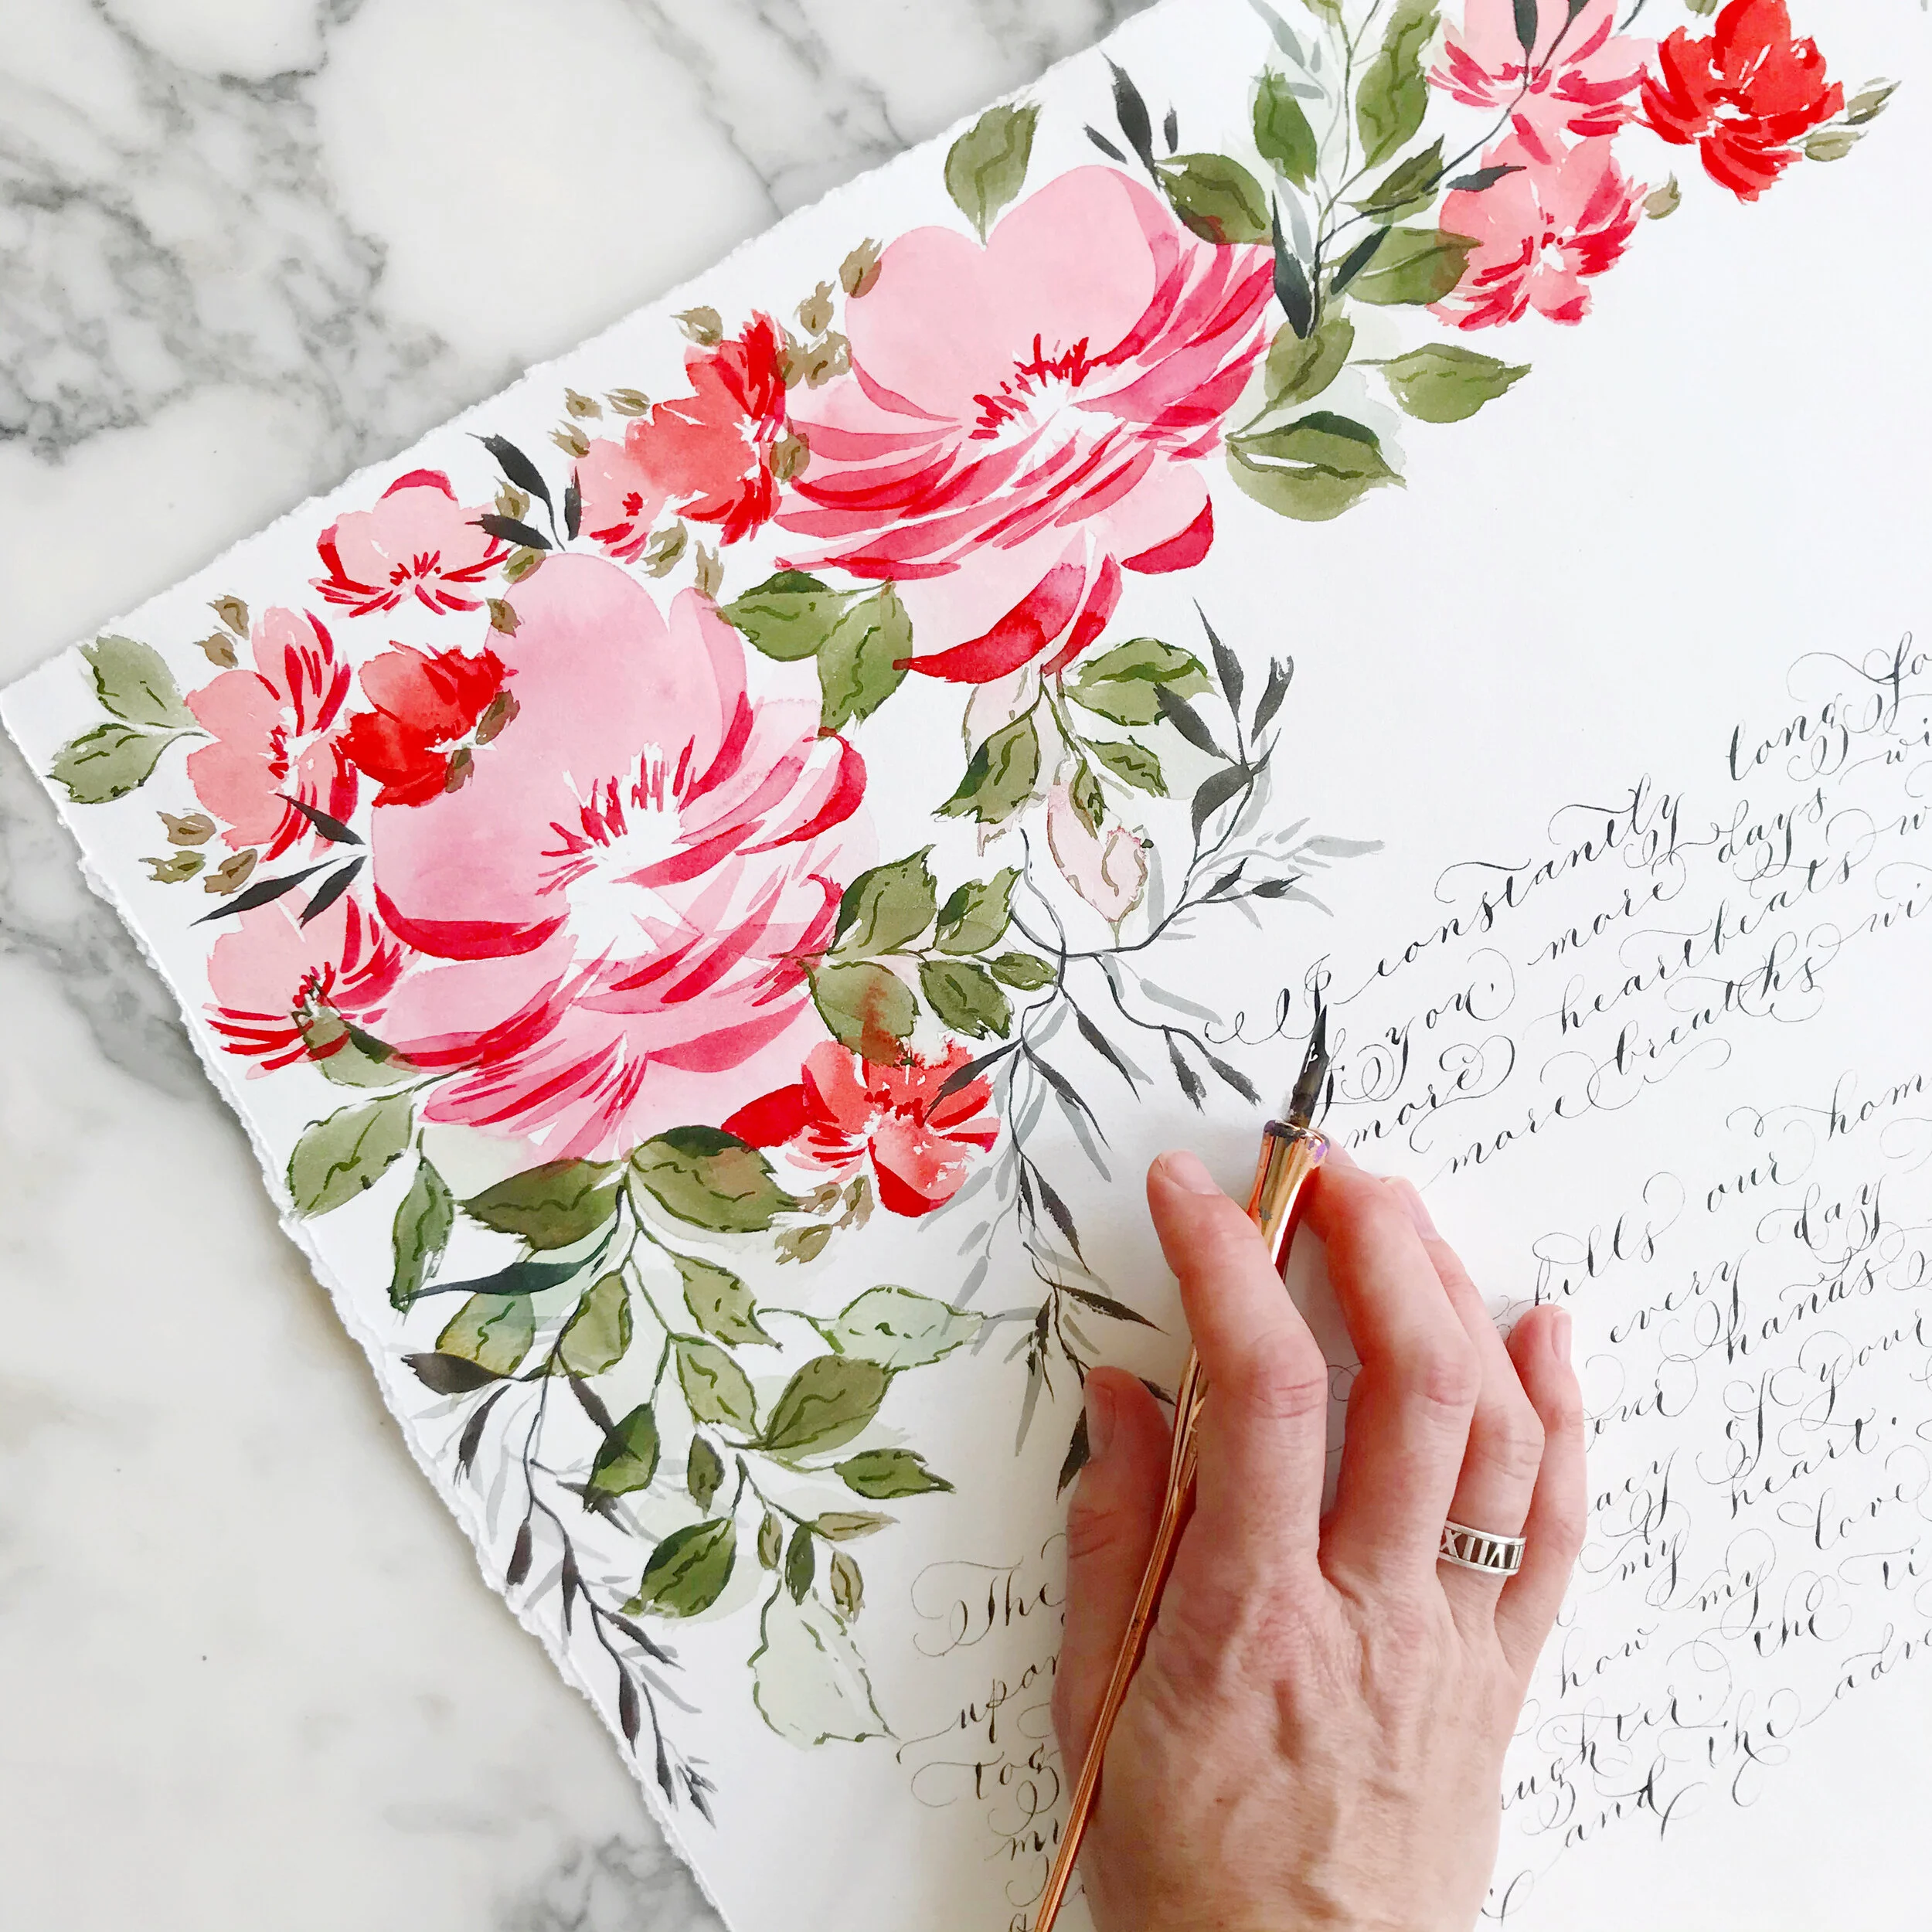 I constantly long fo
of you, more days wi
more heartbeats w
more breaths wi
fills our hom
every day
our hands
acy of your
my heart.
how my love
ughter. the ti
and the adv
The
upon
tog
my
XIIVI